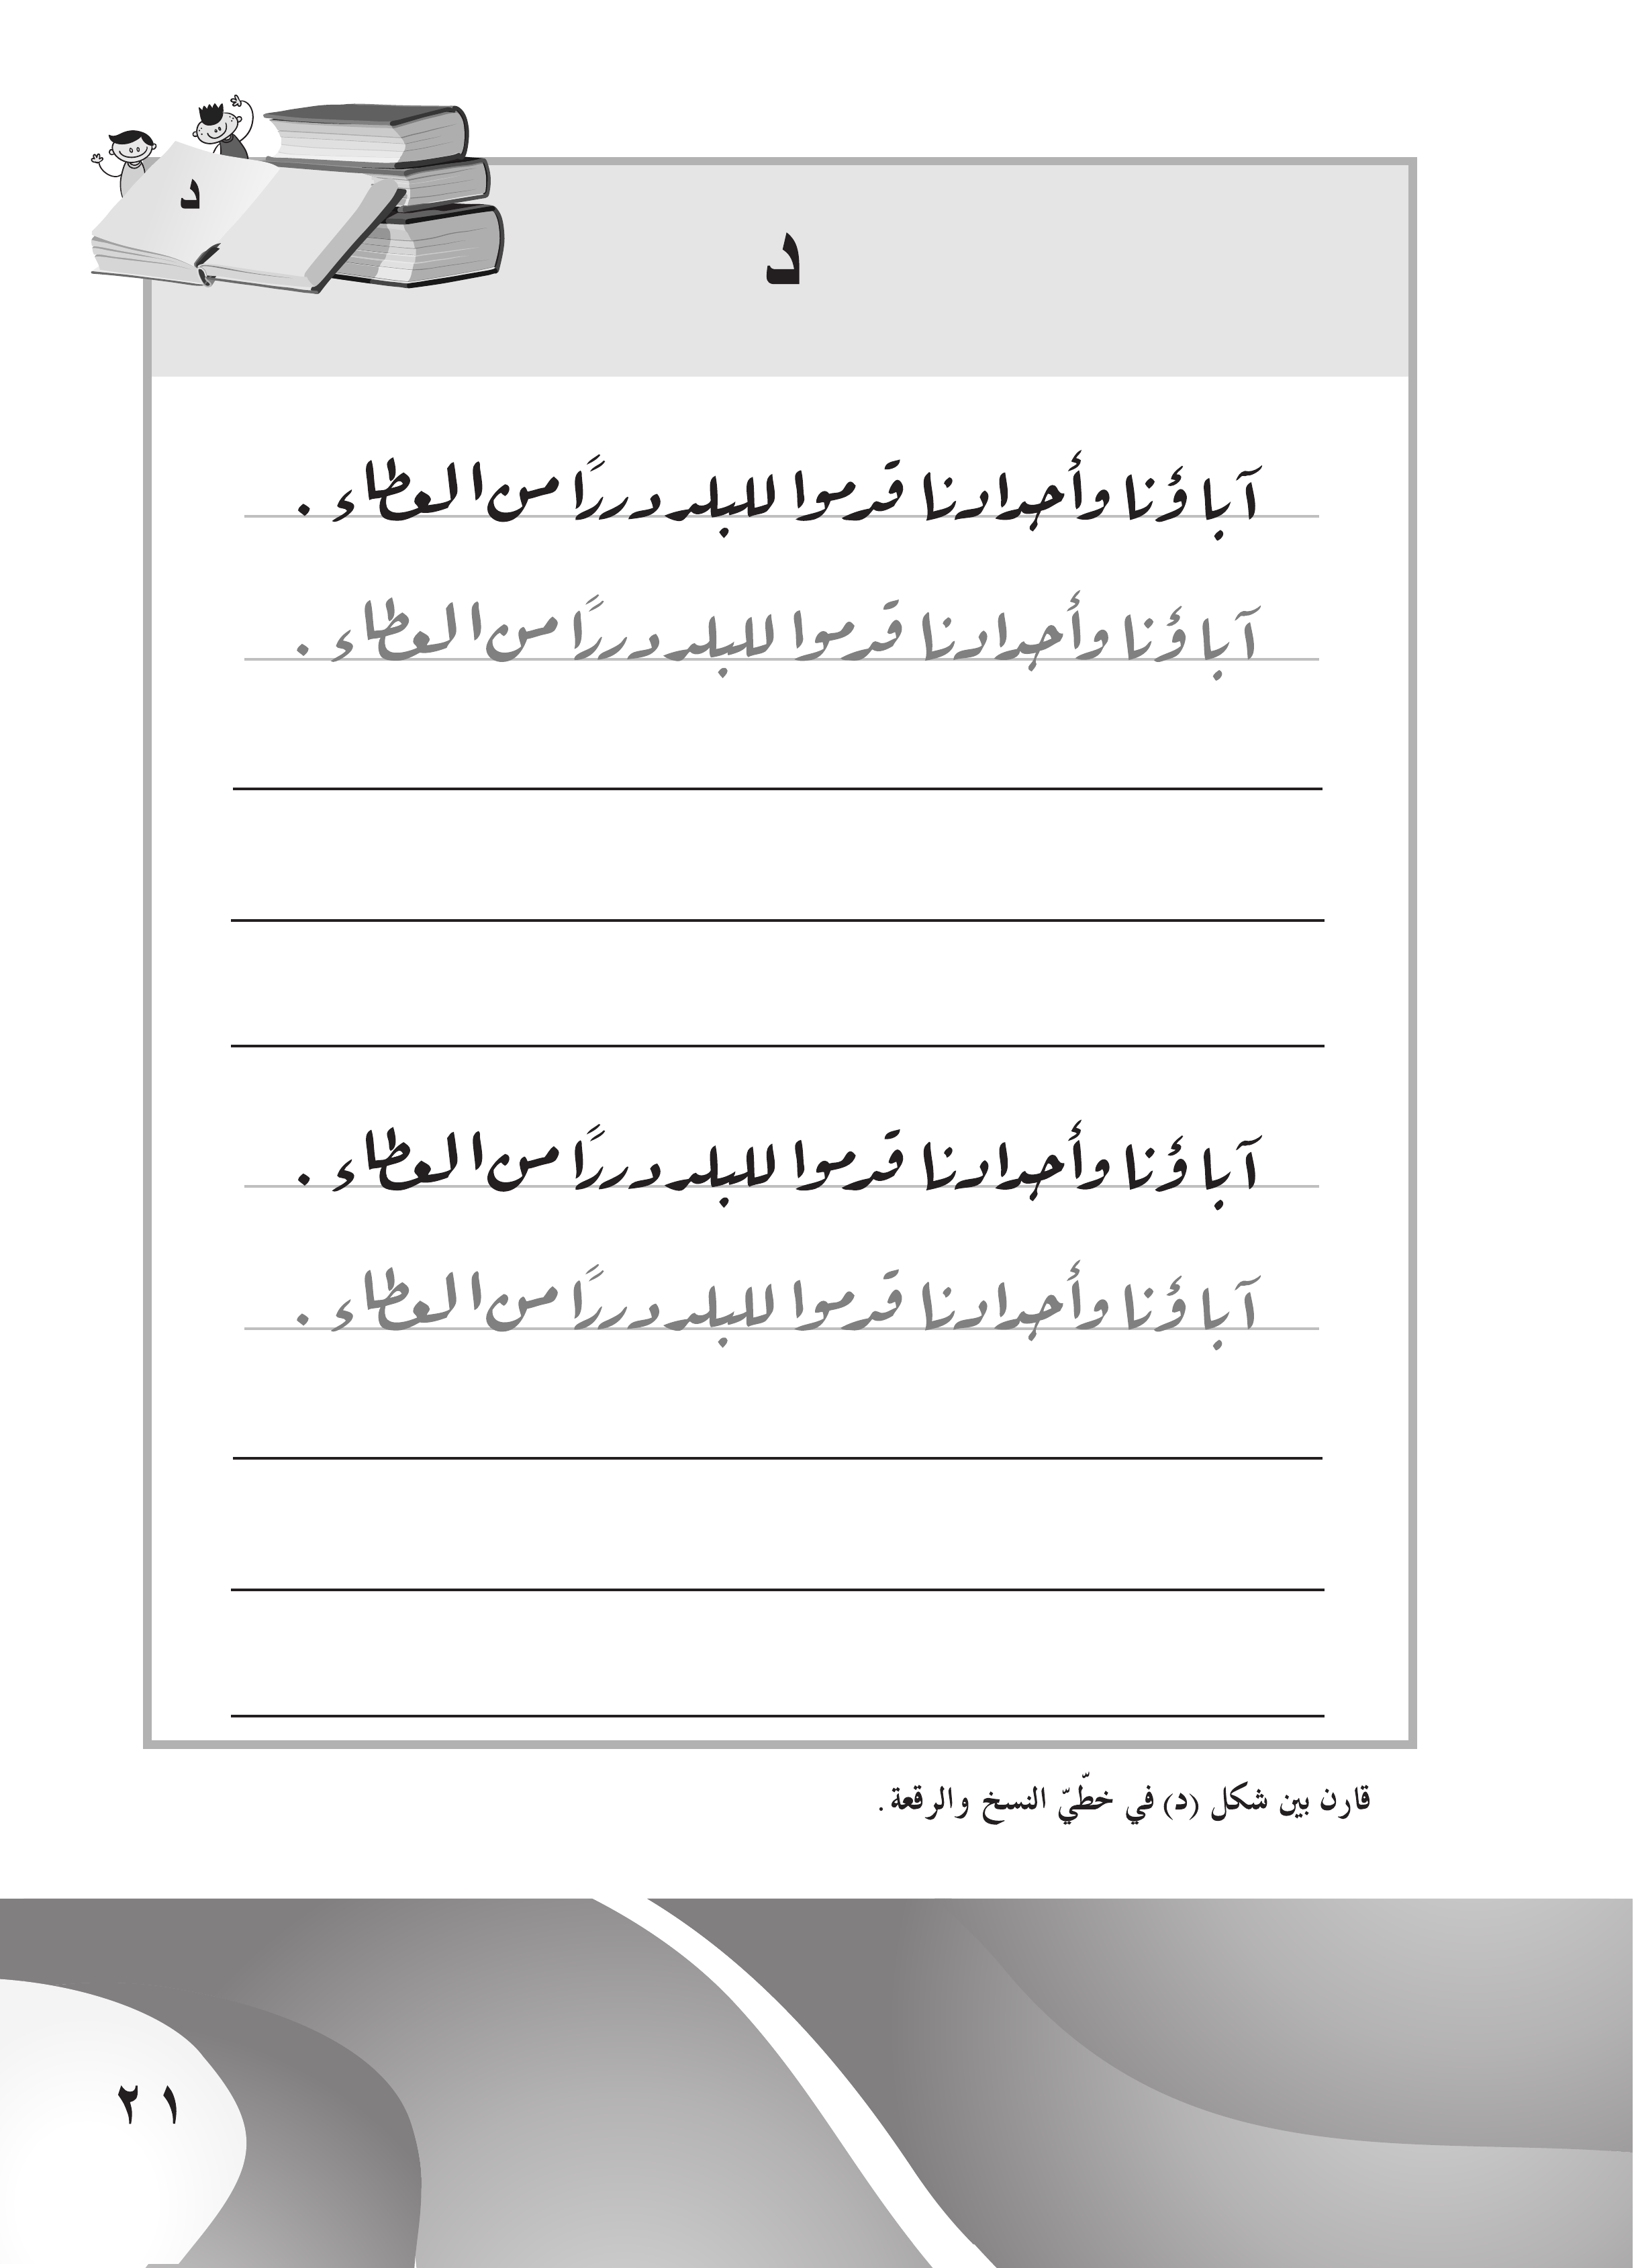 د
د
آباؤنا وأجدادنا قدموا للبلد درراً من العطاء .
آباؤنا وأجدادنا قدموا للبلد درراً من العطاء .
آباؤنا وأجدادنا قدموا للبلد درراً من العطاء .
آباؤنا وأجدادنا قدموا للبلد درراً من العطاء .
قارن بين شكل (د) في خطّيّ النسخ والرقعة .
٢١